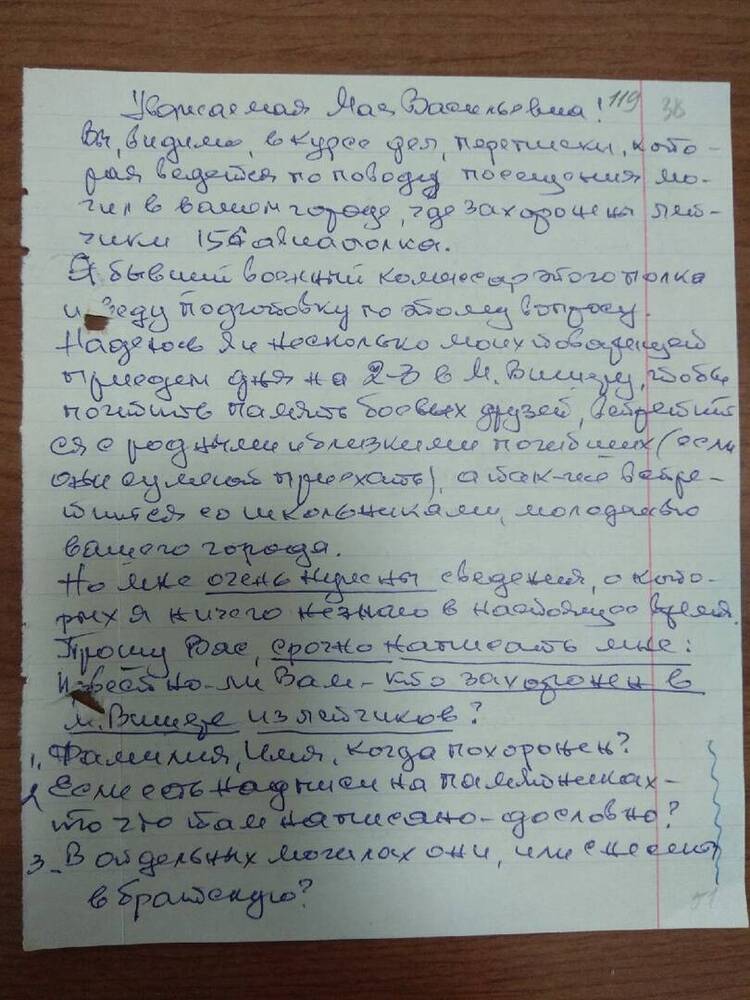 Уважаемая Мая Васильевна! 119 38
Вы, видимо, в курсе дел, переписки, кото-
рая ведется по поводу посещения мо-
гил в вашем городе, где захоронены лет-
чики 154 авиаполка.
Я бывший военный комиссар этого полка
и веду подготовку по этому вопросу.
Надеюсь Я и несколько моих товарищей
приедем дня на 2-3 в М. Вишеру, чтобы
почтить память боевых друзей, встретит
ся с родными и близкими погибших (если
они сумеют приехать), а так-же встре-
тится со школьниками, молодежью
вашего города.
Но мне очень нужны сведения, о кото-
рых я ничего незнаю в настоящее время.
Прошу Вас, срочно написать мне:
Известно-ли Вам - кто захоронен в
М. Вишере из летчиков?
1. Фамилия, Имя, когда похоронен?
2 Если есть надписи на памятниках-
то что там написано-дословно?
3. В отдельных могилах они, или снесены
в братскую?
51